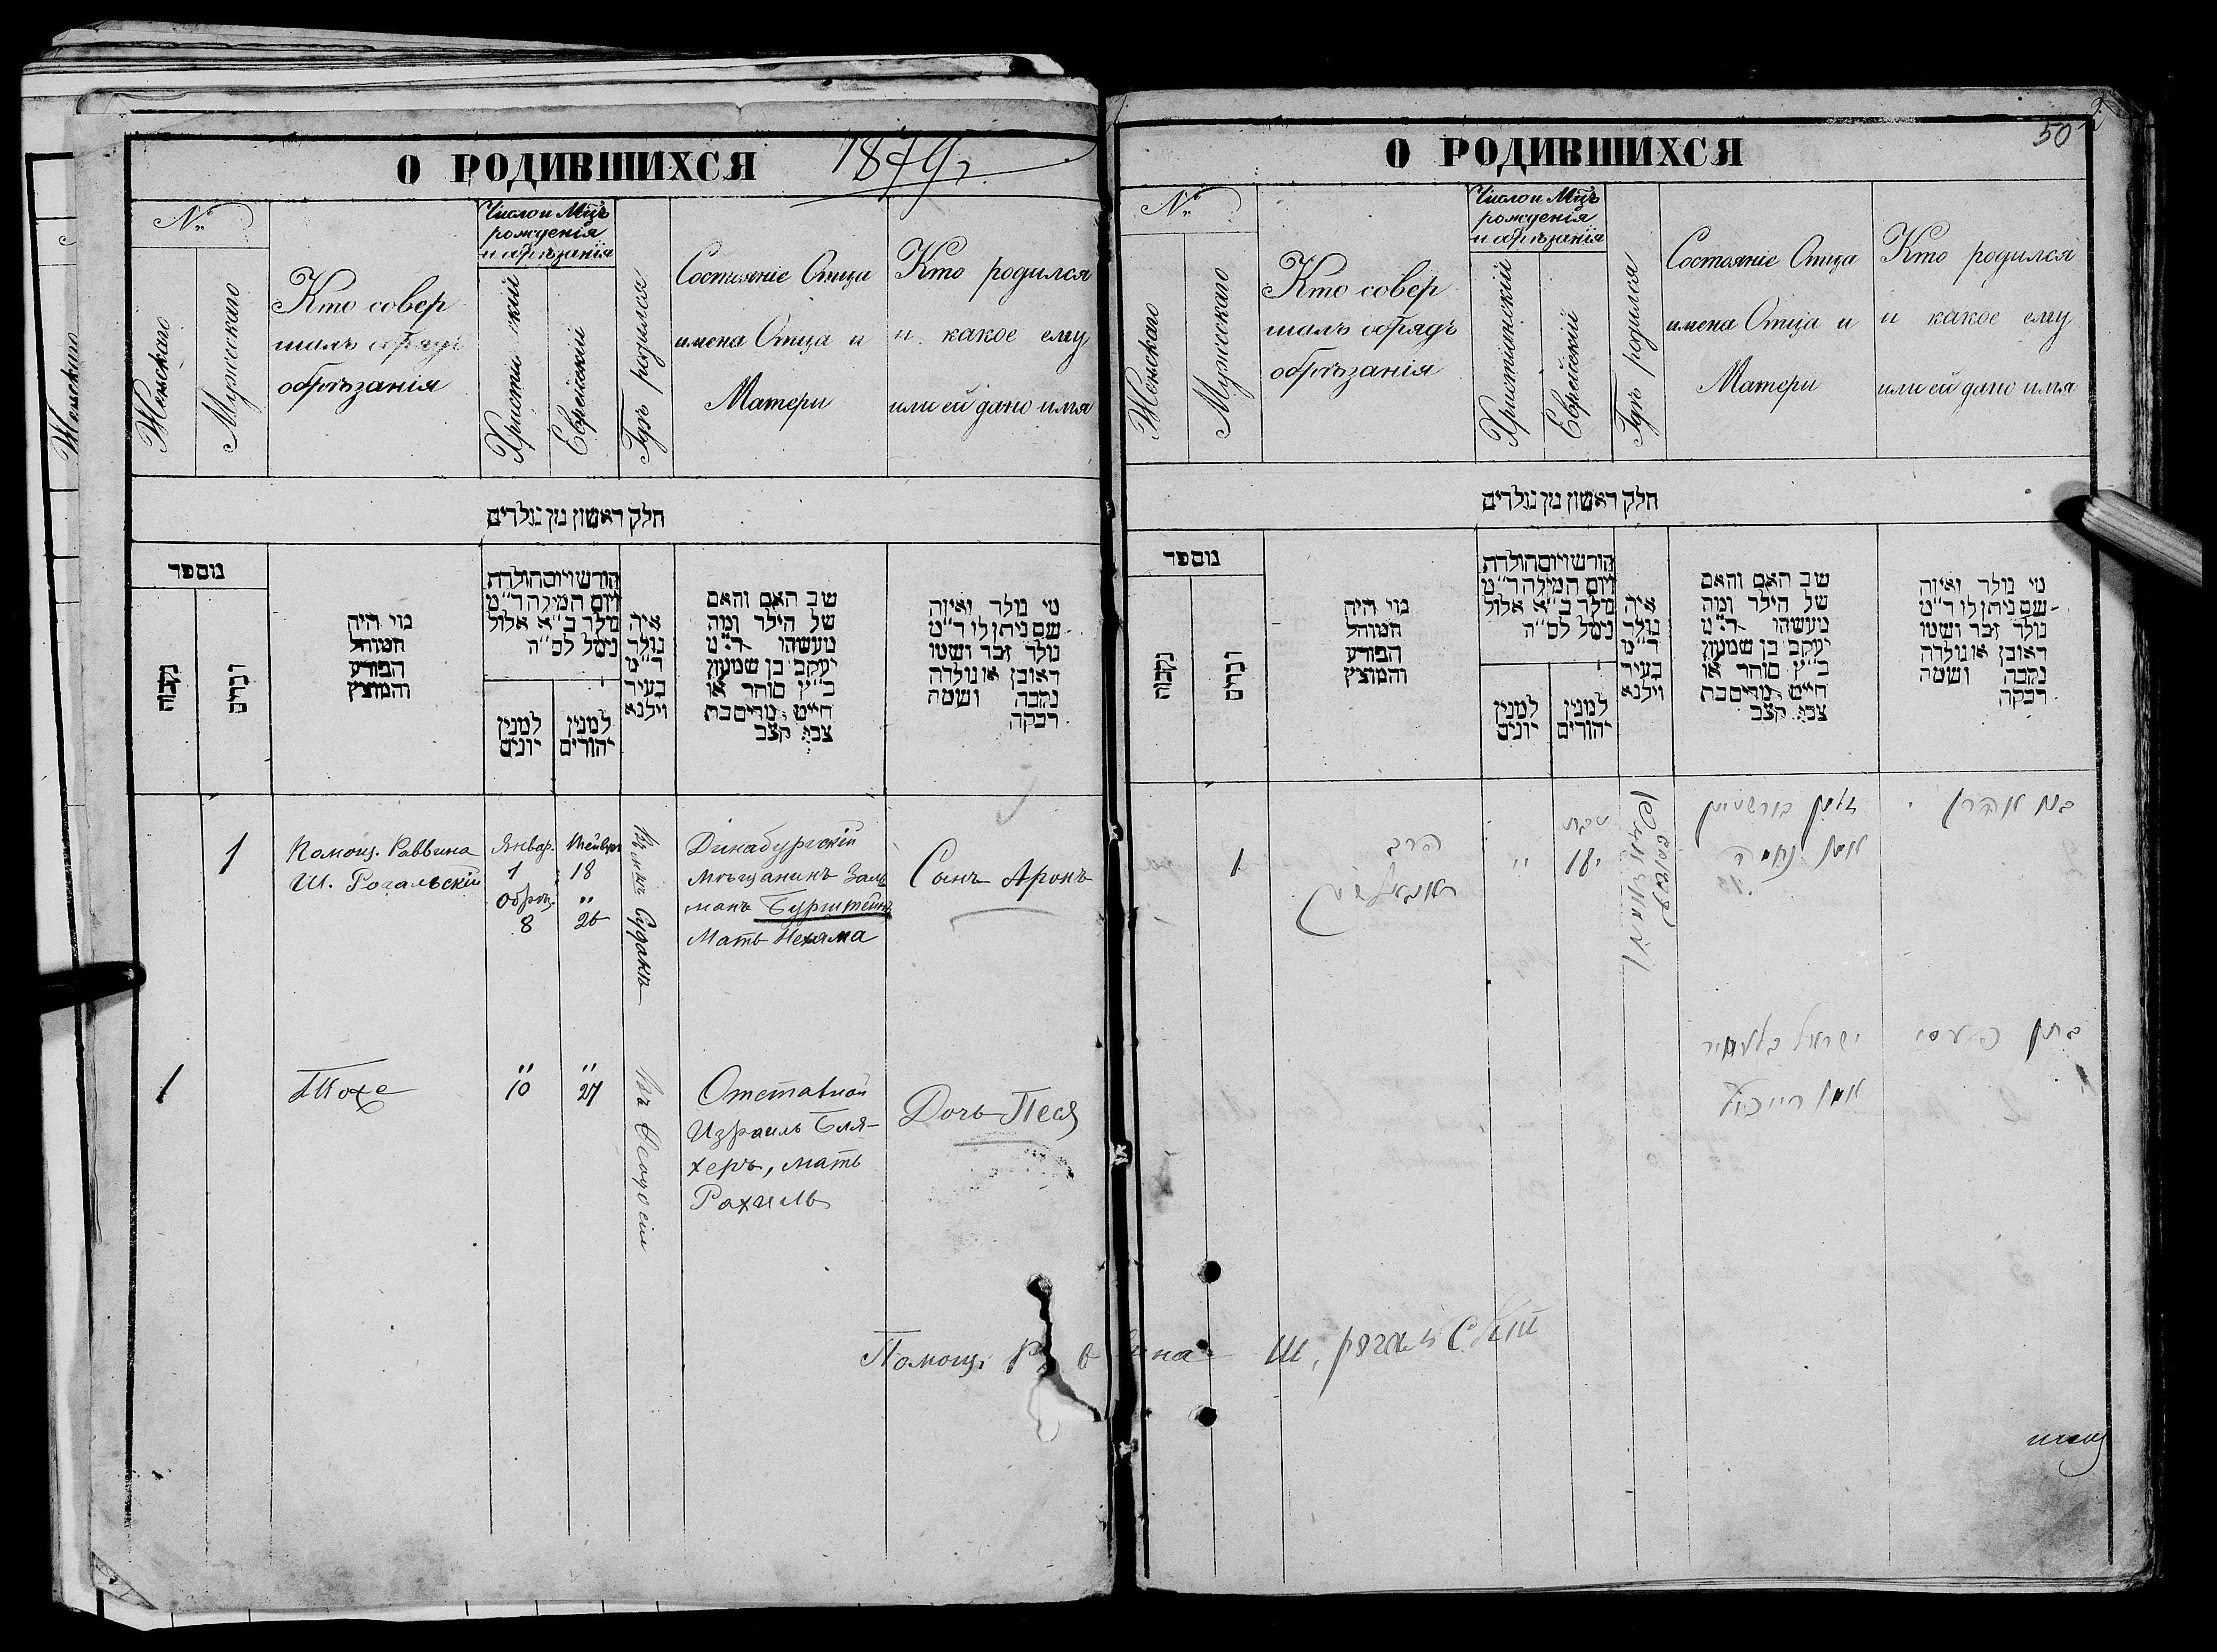 О РОДИВШИХСЯ 1879 г.
№
Женскаго
Мужескаго
Кто совер
шалъ обрядъ
обрѣзанія
Число и Мцъ
рожденія
и обрѣзанія
Еврейскій
Гдѣ родился
Состояніе Отца
имена Отца и
Матери
Кто родился
и какое ему
или ей дано имя
חלק ראשון מן נולדים
מספר
נקבות
זכרים
מי היה
המוהל
הפורע
והמוצץ
חודש ויום הולדת
ויום המילה ד״מ
נולד ב״א אלול
נימל לס״ה
למנין
יונים
למנין
יהודים
איה
נולד
ד״מ
בעיר
ווילנא
שב האם והאם
של הילד ומה
מעשהו ד״מ
יעקב בן שמעון
כ״ץ סוחר או
חייט מרים בת
צבי קצב
מי נולד ואיזה
שם ניתן לו ד״מ
נולד זכר ושמו
ראובן או נולדה
נקבה ושמה
רבקה
1
Помощ. Раввина
Ш. Рогальскій
Январ.
1
обрѣз.
8
18
"
26
Динабургскій
мѣщанинъ Залъ
манъ Бурштейнъ
Мать Нехама
Сынъ Аронъ
1
Тоже
"
10
"
27
Отставной
Израиль Бля-
херъ, мать
Рахиль
Дочь Песя
Помощ.
О РОДИВШИХСЯ
50
№
Женскаго
Мужескаго
Кто совер
шалъ обрядъ
обрѣзанія
Число и Мцъ
рожденія
и обрѣзанія
Христіанскій
Еврейскій
Гдѣ родился
Состояніе Отца
имена Отца и
Матери
Кто родился
и какое ему
или ей дано имя
חלק ראשון מן נולדים
מספר
נקבות
זכרים
מי היה
המוהל
הפורע
והמוצץ
חודש ויום הולדת
ויום המילה ד״מ
נולד ב״א אלול
נימל לס״ה
למנין
יונים
למנין
יהודים
איה
נולד
ד״מ
בעיר
ווילנא
שב האם והאם
של הילד ומה
מעשהו ד״מ
יעקב בן שמעון
כ״ץ סוחר או
חייט מרים בת
צבי קצב
מי נולד ואיזה
שם ניתן לו ד״מ
נולד זכר ושמו
ראובן או נולדה
נקבה ושמה
רבקה
1
הרב
"
טבת
18
זלמן בורשטיין
אמו נחמה
בן אהרן
ישראל בלעכער
אמו
Ш. Рогальскій